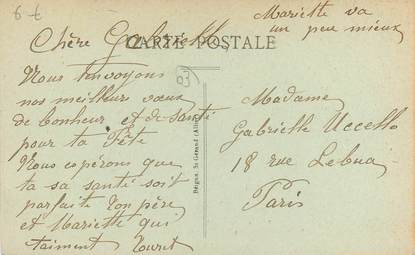 Mariette va
un peu mieux
Chère Gabrielle
CARTE POSTALE
Nous t'envoyons
nos meilleur vœux
de bonheur et de santé
pour ta Fête
Nous espérons que
ta sa santé soit
parfaite ton père
et Mariette qui
t'aiment
Madame
Gabrielle Uccello
18 rue
Paris